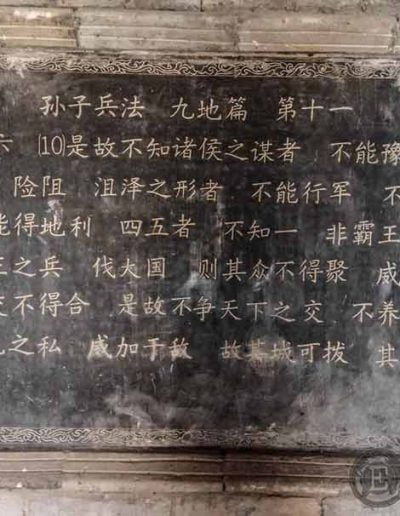 孙子兵法 九地篇 第十一
六 ⑽是故不知诸侯之谋者 不能豫
险阻 沮泽之形者 不能行军 不
能得地利 四五者 不知一 非霸王
王之兵 伐大国 则其众不得聚 威
交不得合 是故不争天下之交 不养
己之私 威加于敌 故其城可拔 其
E